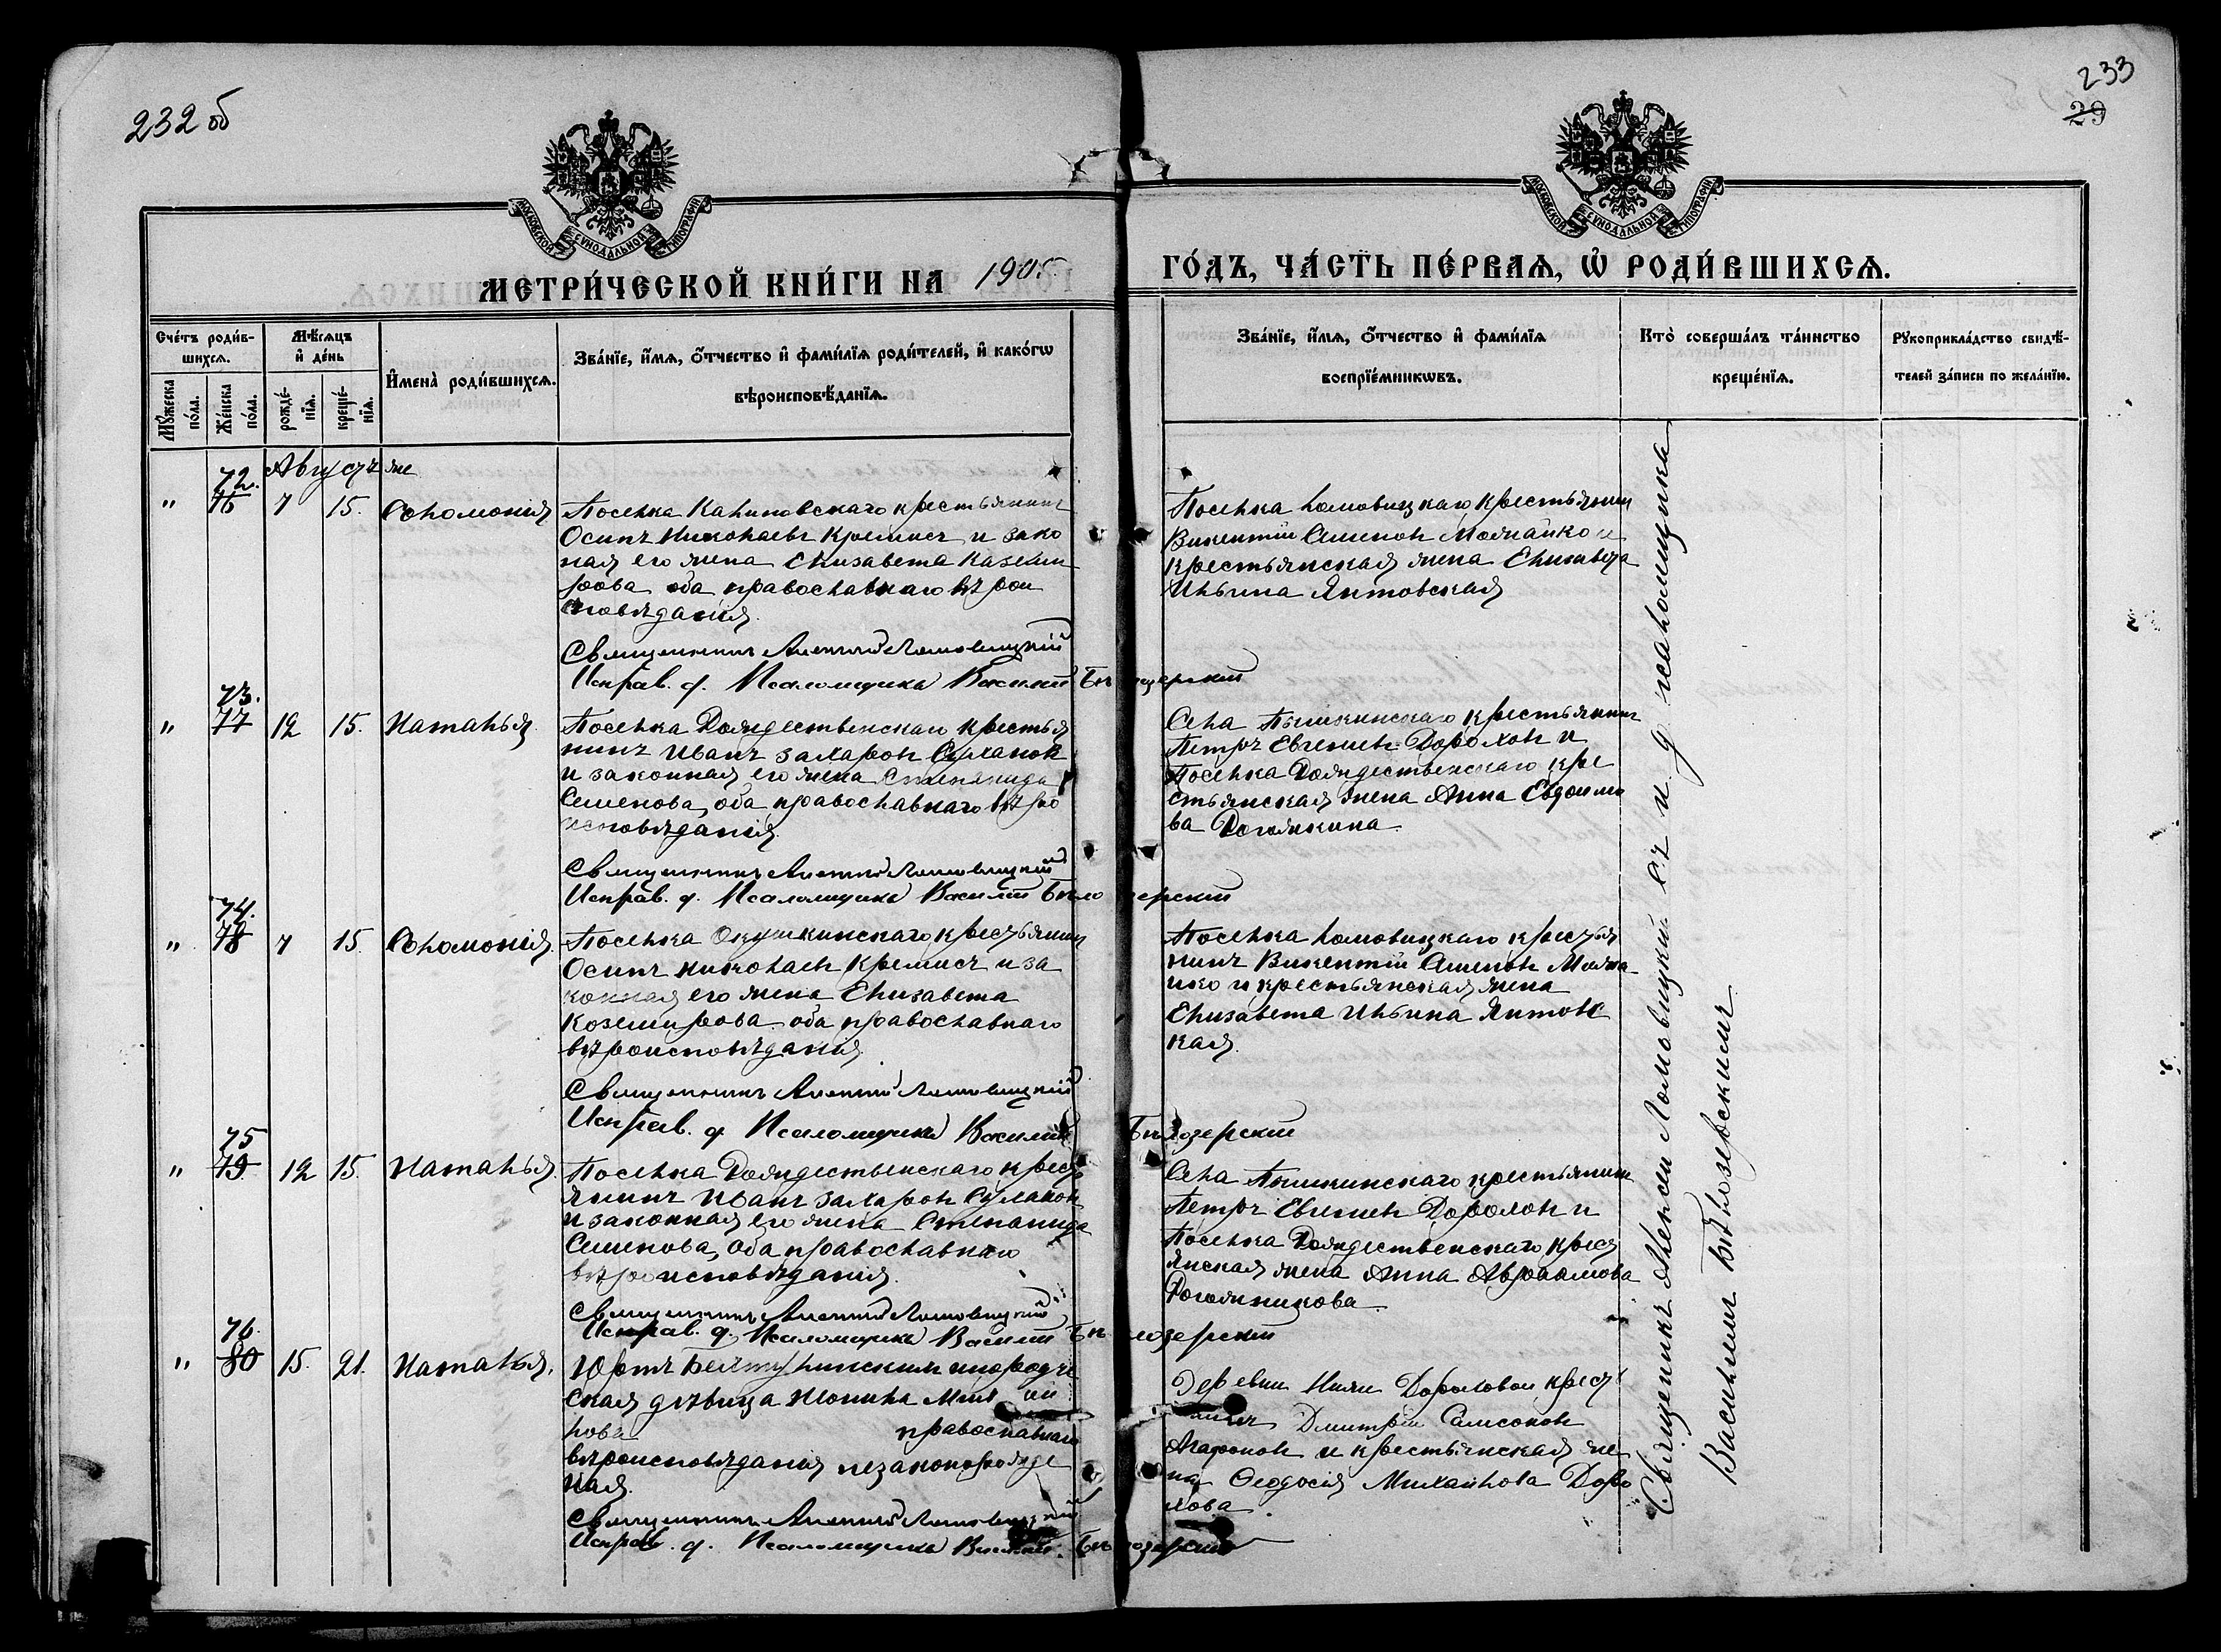 232 об
233
29
МОСКОВСКОЙ СѴНОДАЛЬНОЙ ТИПОГРАФІИ
МОСКОВСКОЙ СѴНОДАЛЬНОЙ ТИПОГРАФІИ
МЕТРИ́ЧЕСКОЙ КНИ́ГИ НА 1905
ГО́ДЪ, ЧА́СТЬ ПЕ́РВАѦ, Ѡ҆ РОДИ́ВШИХСѦ.
Сче́тъ роди́в-
шихсѧ.
Мꙋ́жеска
по́ла.
Же́нска
по́ла.
Мѣ́сѧцъ
и҆ де́нь
рожде́-
нїѧ.
креще́-
нїѧ.
И҆мена̀ роди́вшихсѧ.
Зва́нїе, и҆́мѧ, ѻ҆́тчество и҆ фами́лїѧ роди́телей, и҆ како́гѡ
вѣроисповѣ́данїѧ.
Зва́нїе, и҆́мѧ, ѻ҆́тчество и҆ фами́лїѧ
воспрїе́мникѡвъ.
Кто̀ соверша́лъ та́инство
креще́нїѧ.
Рꙋкоприкла́дство свидѣ́-
телей за́писи по жела́нїю.
Августъ же
72.
" 76 7 15. Соломонія
Поселка Калиновскаго крестьянинъ
Осипъ Николаевъ Кремисъ и зако
ная его жена Елизавета Каземи
рова оба православнаго вѣрои
сповѣданія.
Священникъ Алексій Ломовицкій
Исправ. д. Псаломщика Василій Бѣлозерскій
Поселка Ломовицкаго крестьянин
Викентій Семенов Можайко и
крестьянская жена Елизавета
Ильина Янтовская
73.
" 77 12 15. Наталья
Поселка Рождественскаго крестья
нинъ Иванъ Захаров Суханов
и законная его жена Степанида
Семенова, оба православнаго вѣро
исповѣданія.
Священникъ Алексій Ломовицкій
Исправ. д. Псаломщика Василій Бѣлозерскій
Села Пышкинскаго крестьянинъ
Петръ Евгеньев Дорохов и
Поселка Рождественскаго кре
стьянская жена Анна Евдокимо
ва Рогожкина
74.
" 78 7 15. Соломонія.
Поселка Окушкинскаго крестьянин
Осипъ Николаев Кремисъ и за
конная его жена Елизавета
Коземирова оба православнаго
вѣроисповѣданія
Священникъ Алексій Ломовицкій
Исправ. д. Псаломщика Василій Бѣлозерскій
Поселка Ломовицкаго крестья
нинъ Викентій Семенов Можа
йко и крестьянская жена
Елизавета Ильина Янтовс
кая.
75
" 79 12 15. Наталья.
Поселка Рождественскаго крест
янинъ Иванъ Захаров Сулаков
и законная его жена Степанида
Семенова, оба православнаго
вѣроисповѣданія.
Священникъ Алексій Ломовицкій
Исправ. д. Псаломщика Василій Бѣлозерскій
Села Пышкинскаго крестьянин
Петръ Евгеньев Дорохов и
Поселка Рождественскаго крест
янская жена Анна Авраамова
76.
" 80 15. 21. Наталья.
Юртъ инородче
ская дѣвица
православнаго
вѣроисповѣданія незаконорожде
ная.
Священникъ Алексій Ломовицкій
Исправ. д. Псаломщика Василій Бѣлозерскій
Деревни Нижн Дороховой крест
Дмитрій Самсонов
Агафонов и крестьянская же
на Ѳеодосія Михайлова Доро
хова.
Священникъ Алексѣй Ломовицкій съ и. д. псаломщика
Васильемъ Бѣлозерскимъ